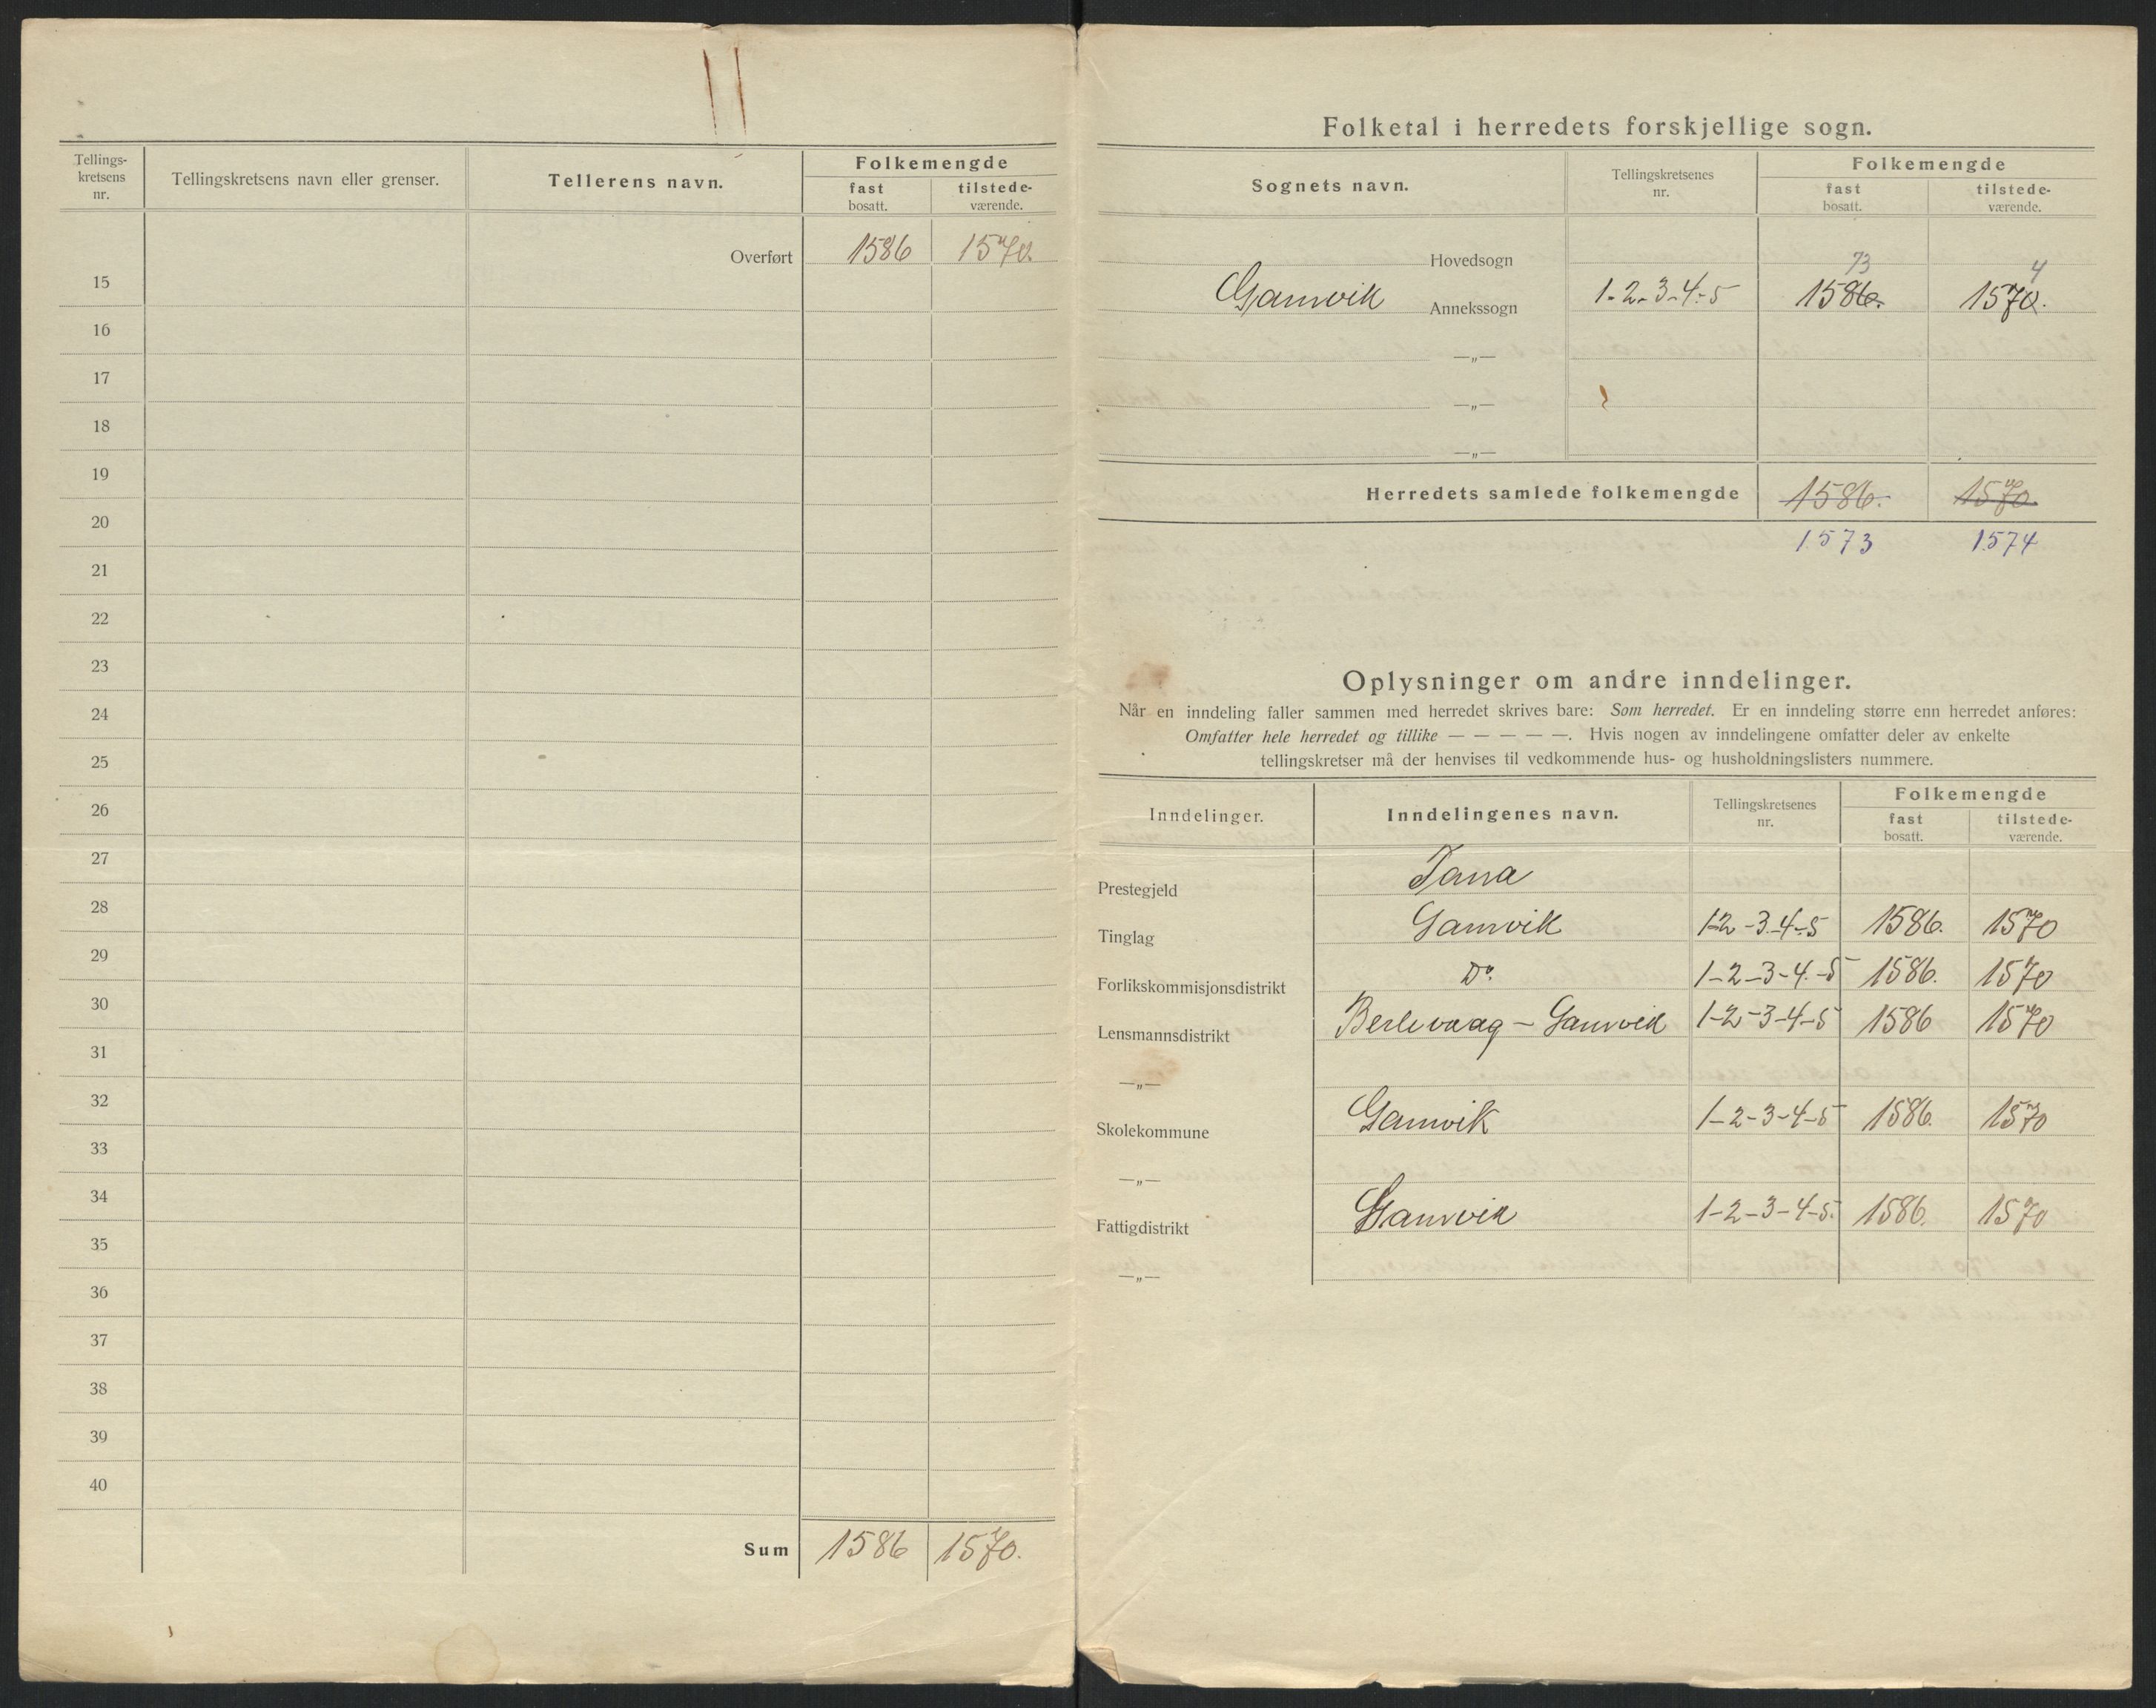 Tellings-
kretsens
nr.
Tellingskretsens navn eller grenser.
Tellerens navn.
Folkemengde
fast
bosatt.
tilstede-
værende.
Overført 1586 1570.
15
16
17
18
19
20
21
22
23
24
25
26
27
28
29
30
31
32
33
34
35
36
37
38
39
40
Sum 1586 1570.
Folketal i herredets forskjellige sogn.
Sognets navn.
Tellingskretsenes
nr.
Folkemengde
fast
bosatt.
tilstede-
værende.
Hovedsogn
73 4
Gamvik Annekssogn 1-2-3-4-5 1586. 1570.
—„—
—„—
—„—
Herredets samlede folkemengde 1586. 1570.
1573 1574
Oplysninger om andre inndelinger.
Når en inndeling faller sammen med herredet skrives bare: Som herredet. Er en inndeling større enn herredet anføres:
Omfatter hele herredet og tillike — — — — —. Hvis nogen av inndelingene omfatter deler av enkelte
tellingskretser må der henvises til vedkommende hus- og husholdningslisters nummere.
Inndelinger.
Inndelingenes navn.
Tellingskretsenes
nr.
Folkemengde
fast
bosatt.
tilstede-
værende.
Prestegjeld Tana
Tinglag Gamvik 1-2-3-4-5 1586. 1570
Forlikskommisjonsdistrikt Do. 1-2-3-4-5 1586. 1570
Lensmannsdistrikt Berlevaag - Gamvik 1-2-3-4-5 1586 1570
—„—
Skolekommune Gamvik 1-2-3-4-5 1586. 1570
—„—
Fattigdistrikt Gamvik 1-2-3-4-5. 1586. 1570
—„—